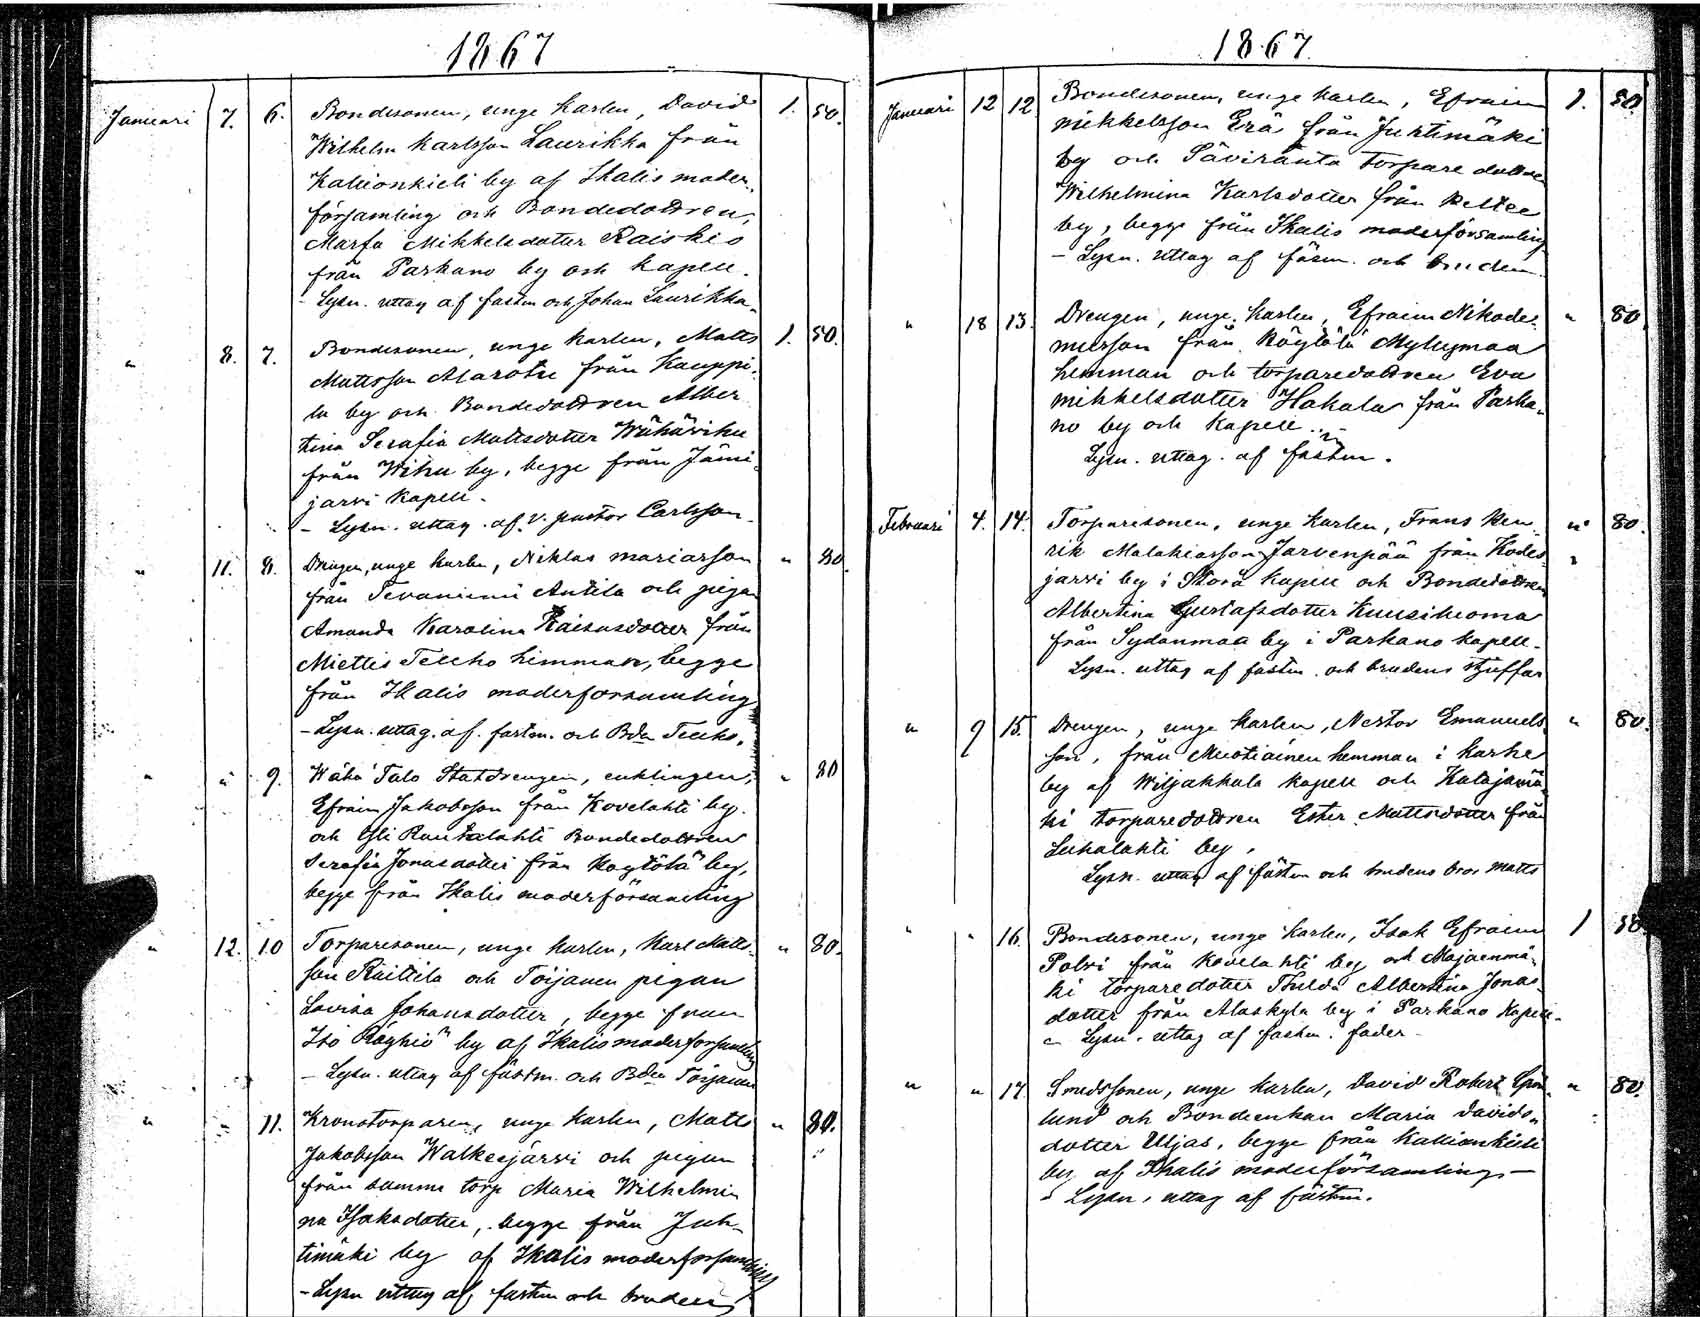 1867
Januari 7. 6. Bondesonen, unge karlen, David 1. 50.
Wilhelm Karlsson Laurikka från
Kallionkieli by af Ikalis moder-
församling och Bondedottren
Marfa Mikkelsdotter Raiskio
från Parkano by och kapell.
- Lysn. uttag af fastm och Johan Laurikka
" 8. 7. Bondesonen, unge karlen, Matts 1. 50.
Mattsson Alarotu från Kauppi-
la by och Bondedottren Alber
tina Serafia Mattsdotter Wähäwihu
från Wihu by, begge från Jämi
jarvi kapell.
- Lysn. uttag. af v. pastor Carlsson.
" 11. 8. Drengen, unge karlen, Niklas mariasson " 80.
från Tevaniemi Antila och pigan
Amanda Karolina Kaisasdotter från
Miettis Teecho himman, begge
från Ikalis moderforsamling
- Lysn. uttag. af. fastm. och Bdn Teecho.
" " 9. Wähä Talo Statdrengen, enklingen, " 80
Efraim Jakobsson från Kovelahti by.
och Yli Rautalahti Bondedottren
Serafia Jonasdotter från Kogtölä by,
begge från Ikalis moderförsamling
" 12. 10 Torparesonen, unge karlen, Karl Matts- " 80.
son Räittila och Toijanen pigan
Lovisa Johansdotter, begge från
Iso Röyhiö by af Ikalis moderforsamling
- Lysn. uttag af fästm. och Bdn Toijanen
" - 11. Kronotorparen, unge karlen, Matts " 80.
Jakobsson Walkeejärvi och pigan
från samma torp Maria Wilhelmi
na Isaksdotter, begge från Juh-
timäki by af Ikalis moderforsamling
- Lysn uttag af, fastm och bruden
1867.
Januari 12 12. Bondesonen, unge karlen, Efraim 1. 50.
mikkelsson Erä från Juhtimäki
by och Säviranta torpare dottren
Wilhelmina Karlsdotter från Keltee
by, begge från Ikalis moderförsamling
- Lysn. uttag af fäsm. och bruden.
" 18 13. Drengen, unge karlen, Efraim Nikode- " 80.
musson från Röytölä Myllymaa
hemman och torparedottren Eva
mikkelsdotter Hakala från Parka-
no by och kapell.
Lysn. uttag. af fastm.
Februari 4. 14. Torparesonen, unge karlen, Frans Hen " 80.
rik Malakiasson Jarvenpää från Kodes
jarvi by i Storå kapell och Bondedottren
Albertina Gustafsdotter Kuusiluoma
från Sydanmaa by i Parkano kapell.
Lysn. uttag af fastm. och brudens styffar
" 9 15. Drengen, unge karlen, Nestor Emanuels " 80.
son, från Muotiainen hemman i Karhe
by af Wiljakkala kapell och Katajamä
ki torparedottren Ester Mattsdotter från
Luhalahti by.
Lysn. uttag af fästm och brudens bror Matts
" " 16. Bondesonen, unge karlen, Isak Efraim 1 50.
Polvi från Kovelahti by och Majaenmä-
ki torparedotter Thilda Albertina Jonas
dotter från Alaskyla by i Parkano Kapell.
- Lysn. uttag af fastm. fader
" " 17. Smedssonen, unge karlen, David Robert " 80.
lund och Bondeenkan Maria Davids-
dotter Uljas, begge från Kallionkieli
by af Ikalis moderförsamling.
- Lysn. uttag af fästm.